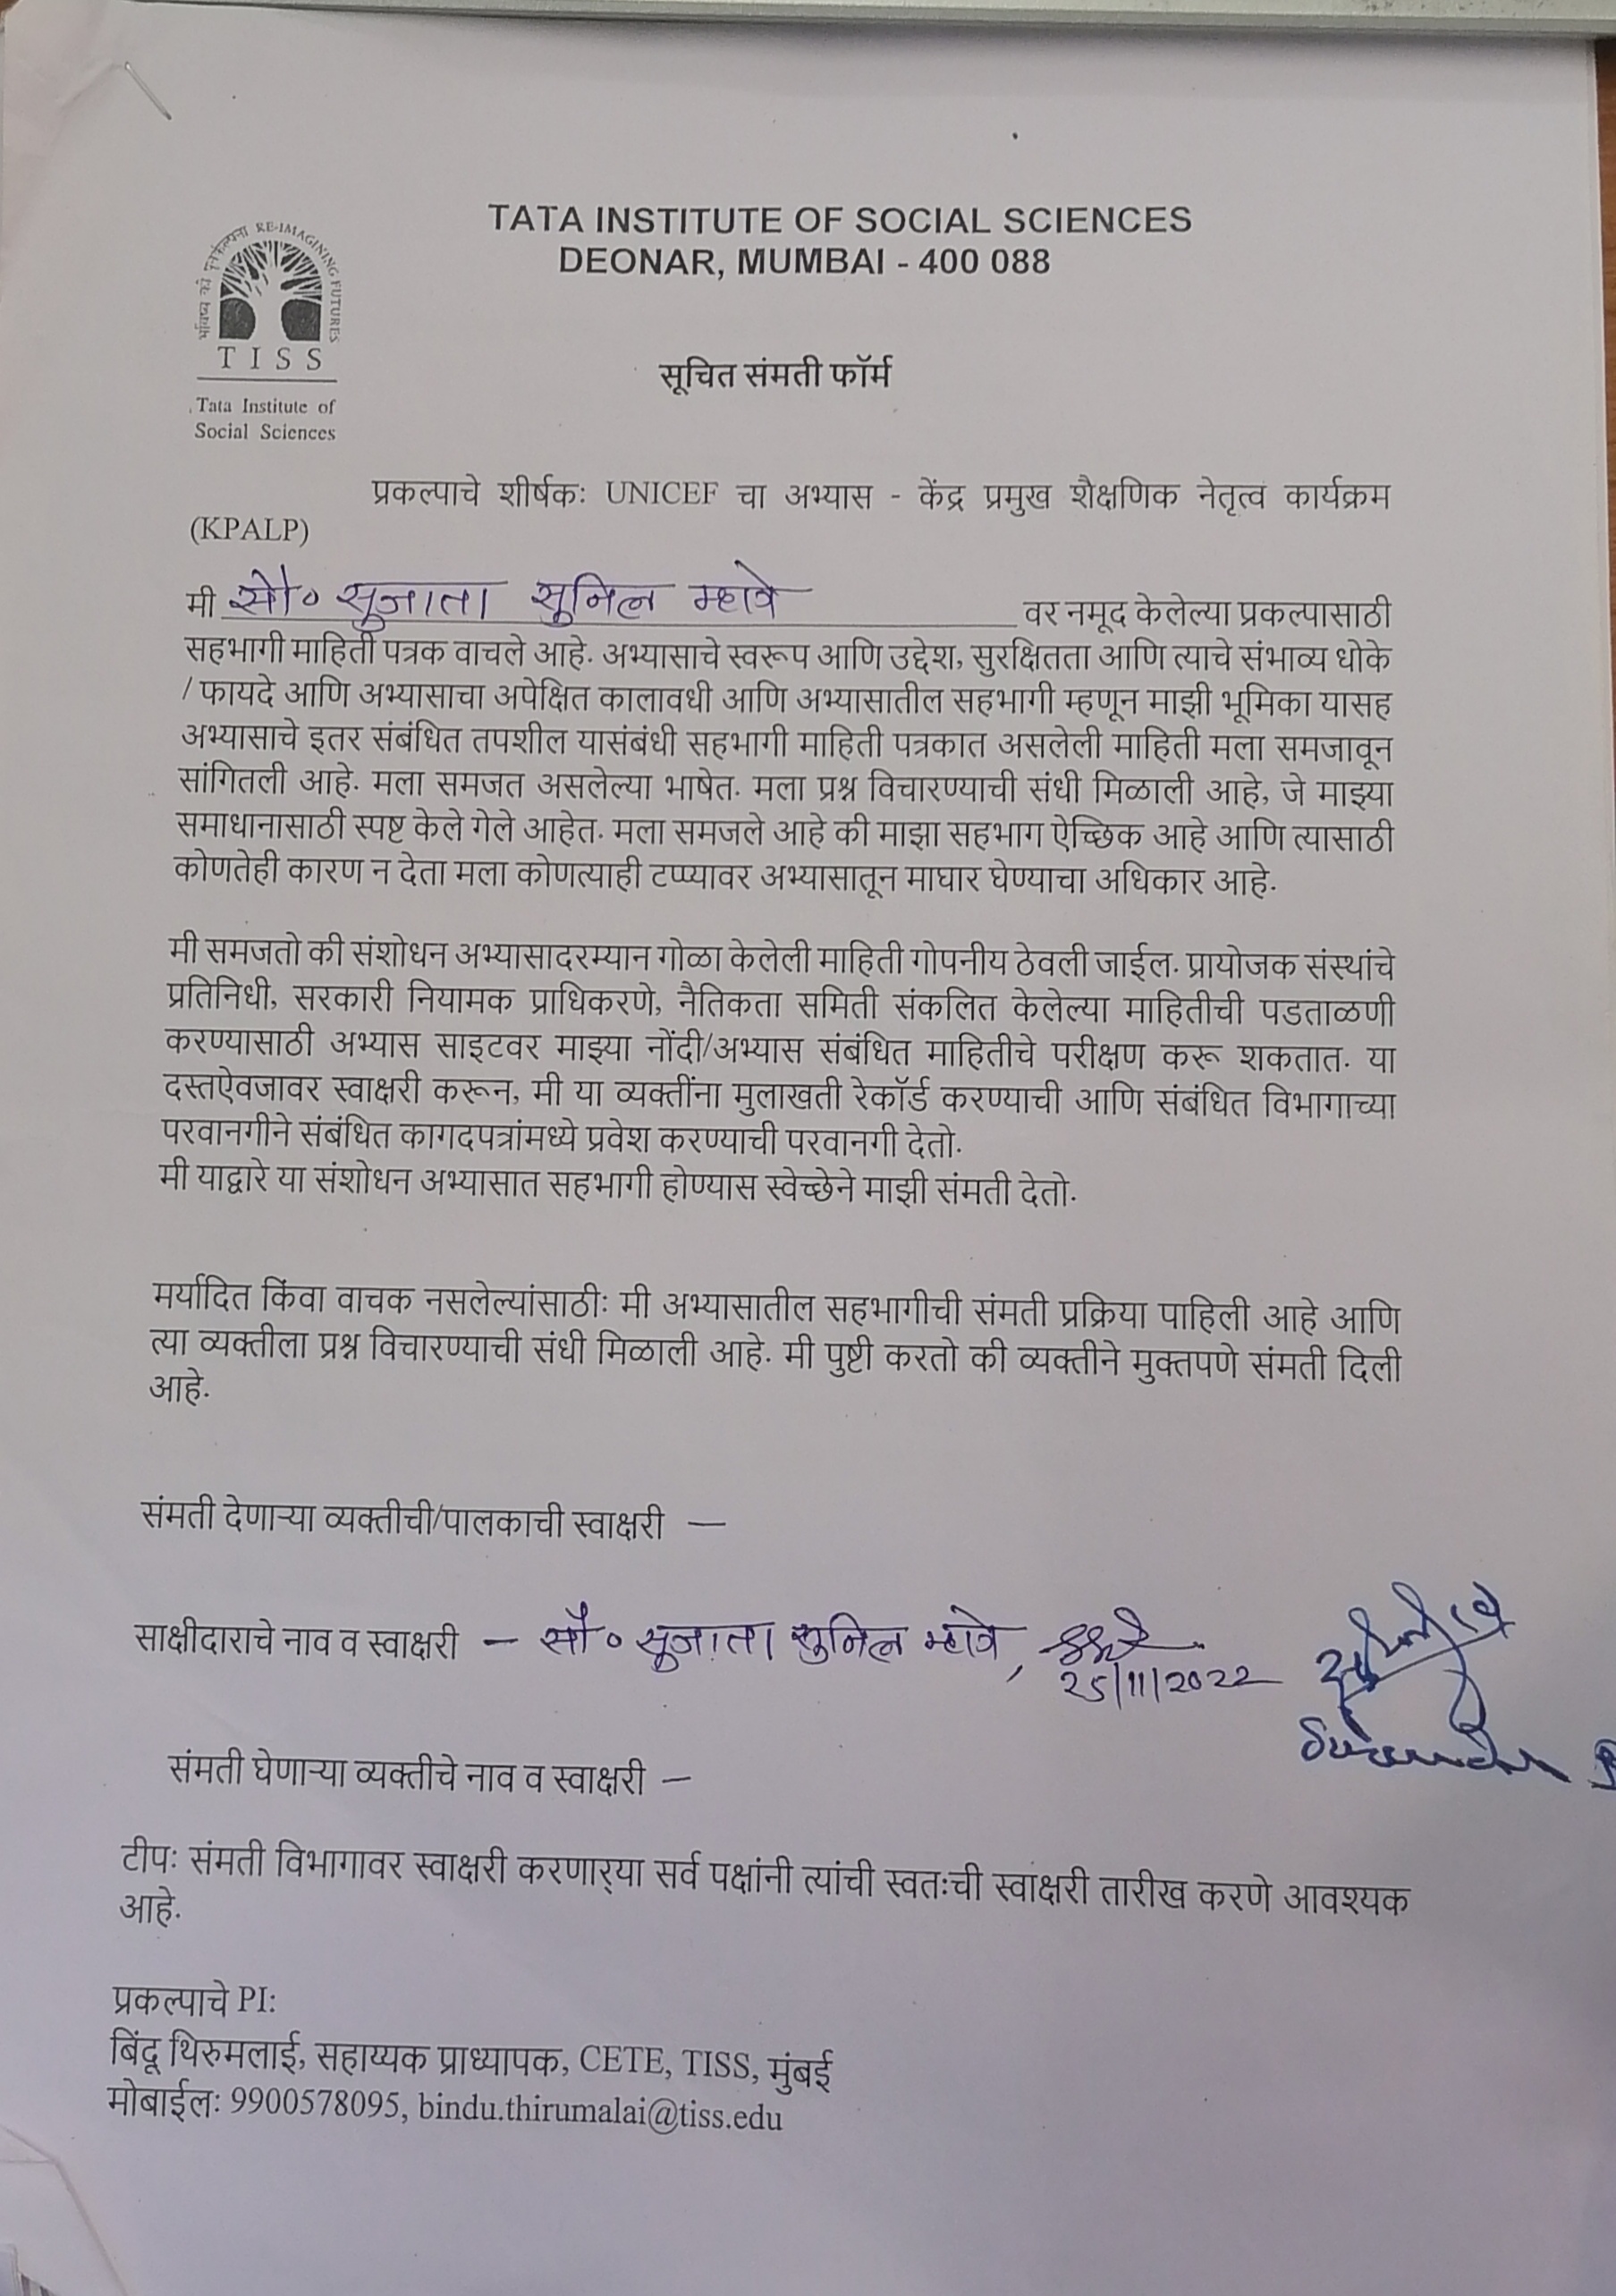 TATA INSTITUTE OF SOCIAL SCIENCES
DEONAR, MUMBAI - 400 088
RE-IMAGINING FUTURES
T I S S
Tata Institute of
Social Sciences
सूचित संमती फॉर्म
प्रकल्पाचे शीर्षकः UNICEF चा अभ्यास - केंद्र प्रमुख शैक्षणिक नेतृत्व कार्यक्रम
(KPALP)
मी सौ० सुजाता सुनिल म्हात्रे वर नमूद केलेल्या प्रकल्पासाठी
सहभागी माहिती पत्रक वाचले आहे. अभ्यासाचे स्वरूप आणि उद्देश, सुरक्षितता आणि त्याचे संभाव्य धोके
/ फायदे आणि अभ्यासाचा अपेक्षित कालावधी आणि अभ्यासातील सहभागी म्हणून माझी भूमिका यासह
अभ्यासाचे इतर संबंधित तपशील यासंबंधी सहभागी माहिती पत्रकात असलेली माहिती मला समजावून
सांगितली आहे. मला समजत असलेल्या भाषेत. मला प्रश्न विचारण्याची संधी मिळाली आहे, जे माझ्या
समाधानासाठी स्पष्ट केले गेले आहेत. मला समजले आहे की माझा सहभाग ऐच्छिक आहे आणि त्यासाठी
कोणतेही कारण न देता मला कोणत्याही टप्प्यावर अभ्यासातून माघार घेण्याचा अधिकार आहे.
मी समजतो की संशोधन अभ्यासादरम्यान गोळा केलेली माहिती गोपनीय ठेवली जाईल. प्रायोजक संस्थांचे
प्रतिनिधी, सरकारी नियामक प्राधिकरणे, नैतिकता समिती संकलित केलेल्या माहितीची पडताळणी
करण्यासाठी अभ्यास साइटवर माझ्या नोंदी/अभ्यास संबंधित माहितीचे परीक्षण करू शकतात. या
दस्तऐवजावर स्वाक्षरी करून, मी या व्यक्तींना मुलाखती रेकॉर्ड करण्याची आणि संबंधित विभागाच्या
परवानगीने संबंधित कागदपत्रांमध्ये प्रवेश करण्याची परवानगी देतो.
मी याद्वारे या संशोधन अभ्यासात सहभागी होण्यास स्वेच्छेने माझी संमती देतो.
मर्यादित किंवा वाचक नसलेल्यांसाठीः मी अभ्यासातील सहभागीची संमती प्रक्रिया पाहिली आहे आणि
त्या व्यक्तीला प्रश्न विचारण्याची संधी मिळाली आहे. मी पुष्टी करतो की व्यक्तीने मुक्तपणे संमती दिली
आहे.
संमती देणाऱ्या व्यक्तीची/पालकाची स्वाक्षरी —
साक्षीदाराचे नाव व स्वाक्षरी — सौ० सुजाता सुनिल म्हात्रे,
25/11/2022
संमती घेणाऱ्या व्यक्तीचे नाव व स्वाक्षरी —
टीपः संमती विभागावर स्वाक्षरी करणार्‍या सर्व पक्षांनी त्यांची स्वतःची स्वाक्षरी तारीख करणे आवश्यक
आहे.
प्रकल्पाचे PI:
बिंदू थिरुमलाई, सहाय्यक प्राध्यापक, CETE, TISS, मुंबई
मोबाईलः 9900578095, bindu.thirumalai@tiss.edu